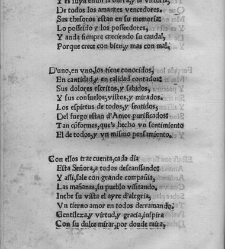 Y es suya entre la tierra, y la victoria,
De todos los amantes vencedores,
Sus thesoros estan en su memoria:
Lo posseido y los posseedores,
Y anda siempre creciendo su caudal,
Porque crece con bien, y mas con mal.
D'uno, en vno, los tiene conocidos,
En cantidad, y en calidad contados:
Sus dolores escritos, y sabidos,
Y sus consuelos, vistos, y mirados.
Los espiritus de todos, y sentidos,
Del fuego estan d'Amor purificados:
Tan conformes, que's hecho vn sentimiento
El de todos, y vn mismo pensamiento.
Con ellos trae cuenta, cada dia
Esta Señora, y todos descansando:
Y assi, sale con grande compañia,
Las mañanas, su pueblo visitando,
Inche su vista el ayre d'alegria,
Vn tierno amor en todos derramando,
Gentileza, y virtud, y gracia, inspira
Con su dulce mirar, por donde mira,